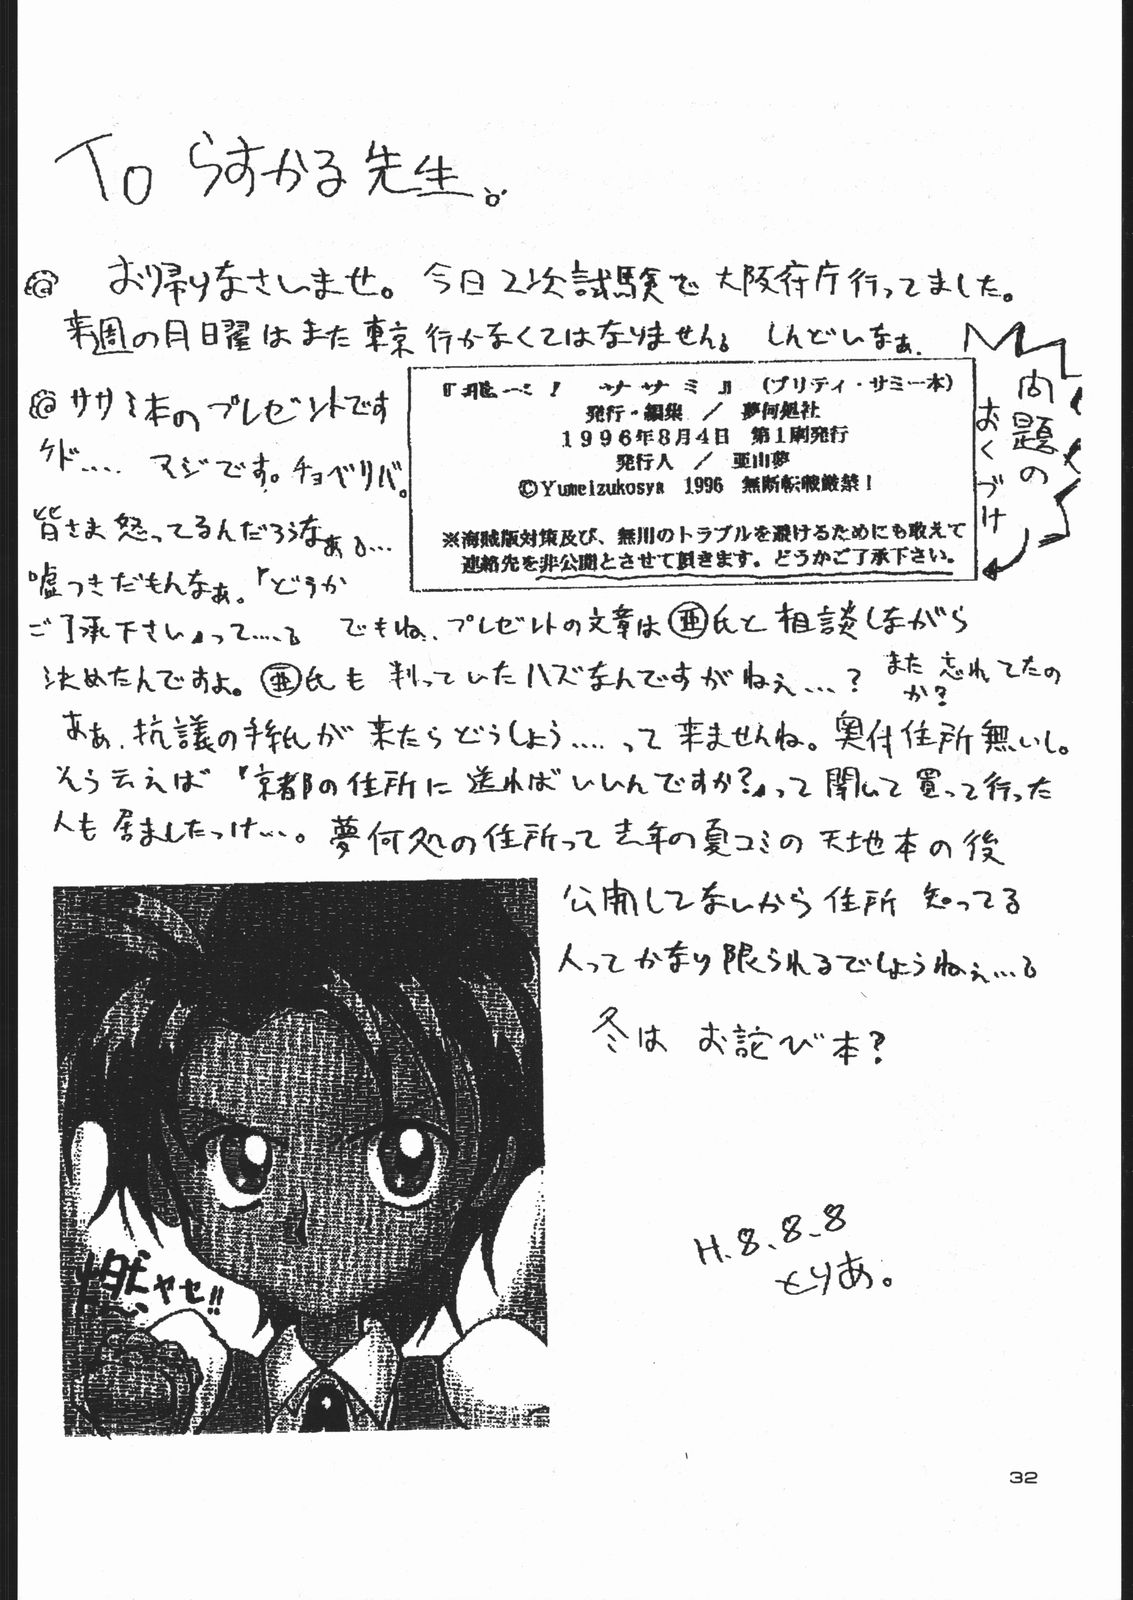 To らすかる先生。
お帰りなさいませ。今日2次試験で大阪府庁行ってました。
来週の月曜日はまた東京行かなくてはなりません。しんどいなぁ。
ササミ本のプレゼントです
ケド…. マジです。チョベリバ。
皆さま怒ってるんだろうなぁ。…
嘘つきだもんなぁ。『どうか
ご了承下さい』って…。でもね、プレゼントの文章は亜氏と相談しながら
決めたんですよ。亜氏も判っていたハズなんですがねぇ…?また忘れてたのか?
あぁ、抗議の手紙が来たらどうしよう….って来ませんね。奥付住所無いし。
そう云えば『京都の住所に送ればいいんですか?』って聞いて買って行った
人も居ましたっけ…。夢何処の住所って去年の夏コミの天地本の後
公開してないから住所知ってる
人ってかなり限られるでしょうねぇ…。
冬はお詫び本?
問題の
おくづけ
『飛べ! ササミ』(プリティ・サミー本)
発行・編集 / 夢何処社
1996年8月4日 第1刷発行
発行人 / 亜山夢
©Yumeizukosya 1996 無断転載厳禁!
※海賊版対策及び、無用のトラブルを避けるためにも敢えて
連絡先を非公開とさせて頂きます。どうかご了承下さい。
燃ヤセ!!
H.8.8.8
とりあ。
32